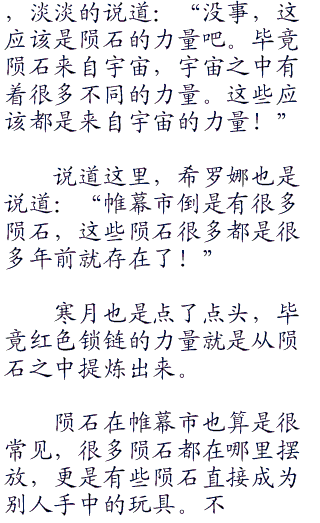 ，淡淡的说道：“没事，这
应该是陨石的力量吧。毕竟
陨石来自宇宙，宇宙之中有
着很多不同的力量。这些应
该都是来自宇宙的力量！”
说道这里，希罗娜也是
说道：“帷幕市倒是有很多
陨石，这些陨石很多都是很
多年前就存在了！”
寒月也是点了点头，毕
竟红色锁链的力量就是从陨
石之中提炼出来。
陨石在帷幕市也算是很
常见，很多陨石都在哪里摆
放，更是有些陨石直接成为
别人手中的玩具。不